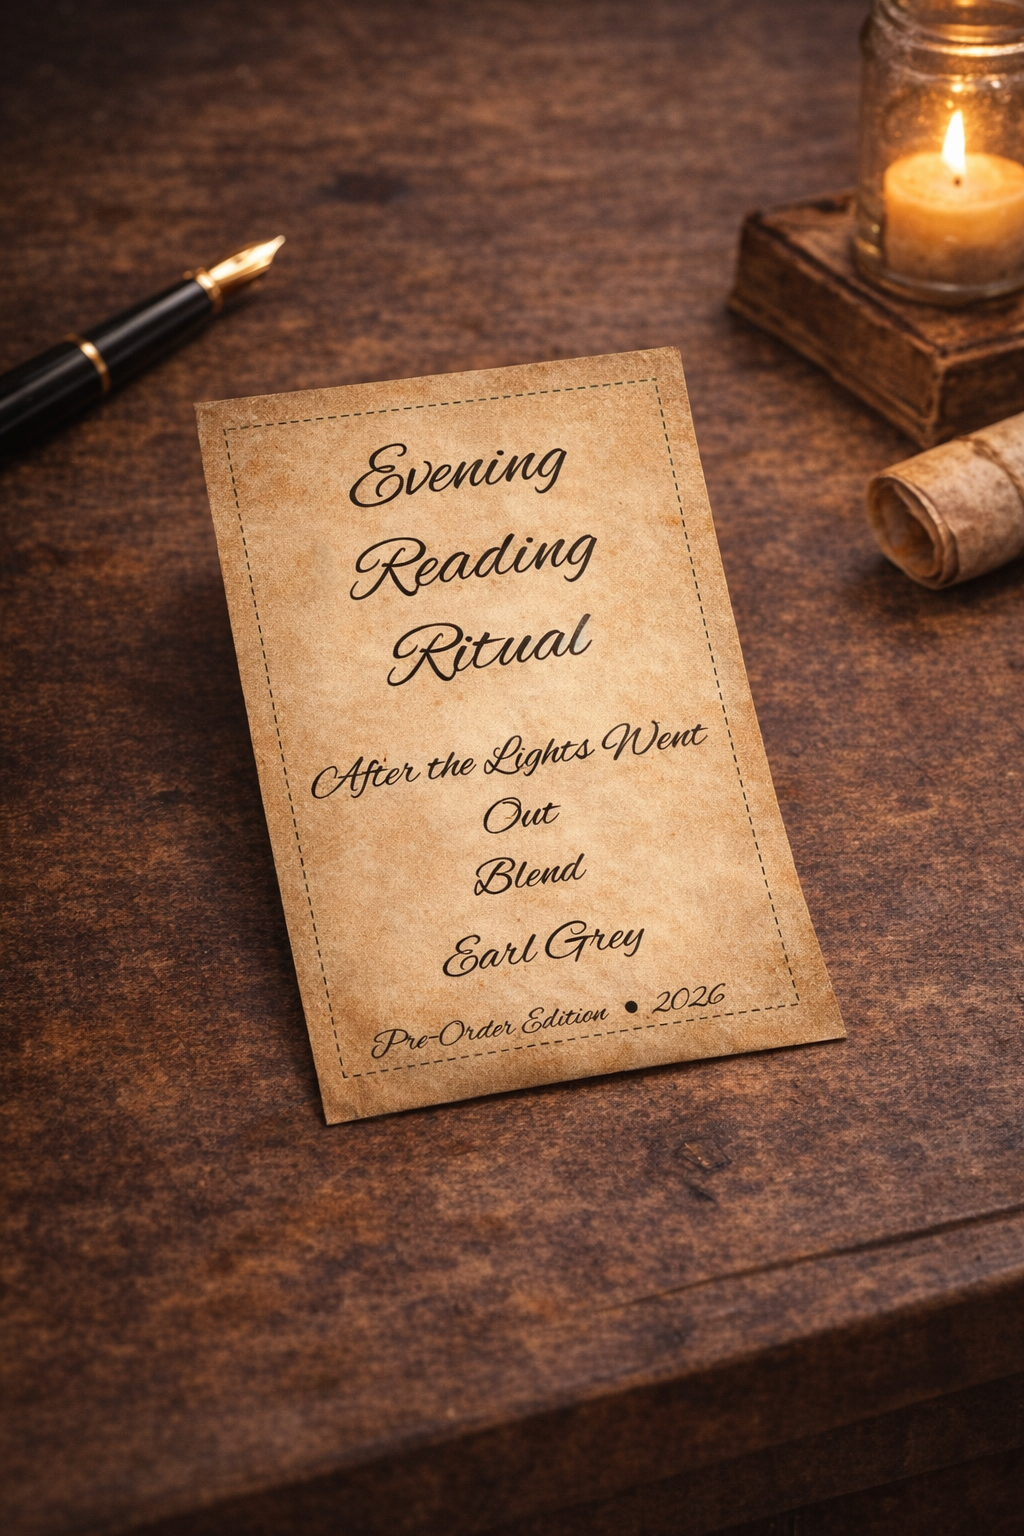 Evening
Reading
Ritual
After the Lights Went
Out
Blend
Earl Grey
Pre-Order Edition • 2026